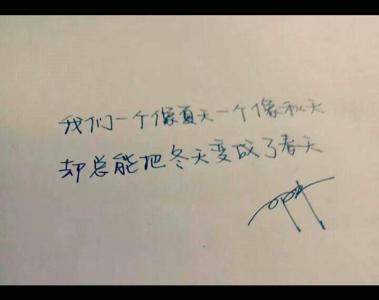 我们一个像夏天一个像秋天
却总能把冬天变成了春天